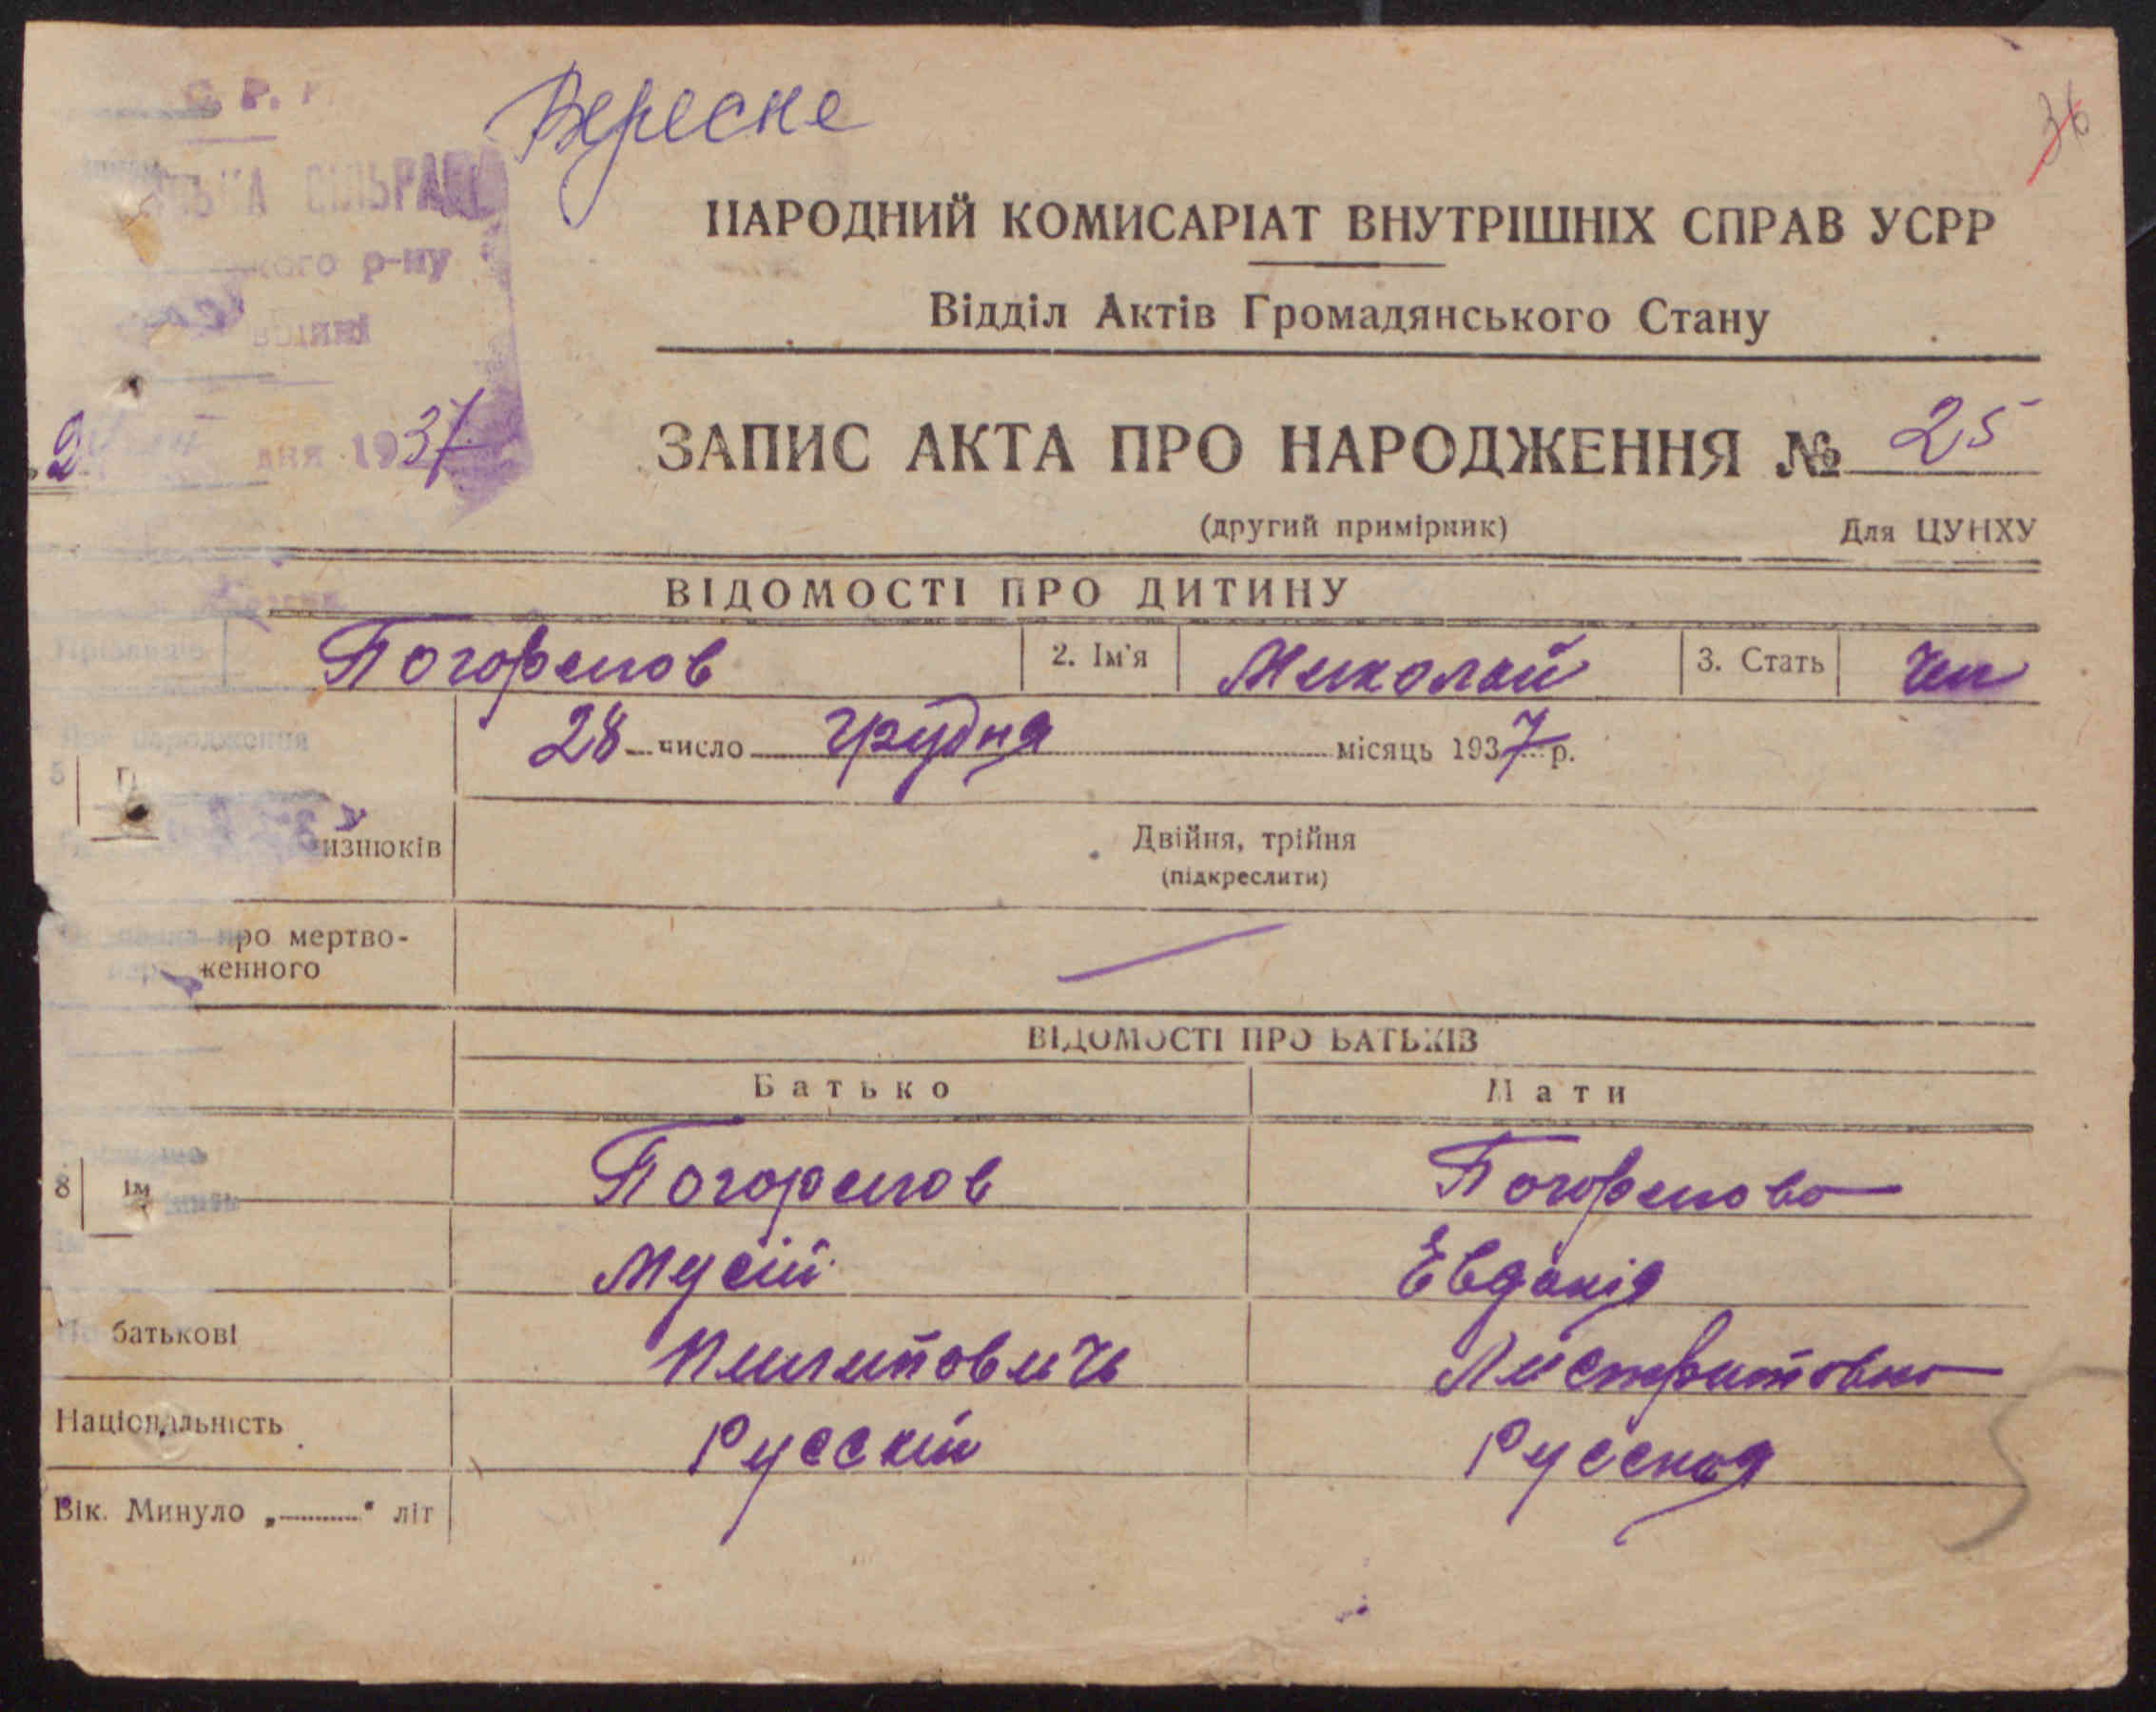 Вересне
36
С. Р. Р.
СІЛЬРАДА
кого р-ну
НАРОДНИЙ КОМИСАРІАТ ВНУТРІШНІХ СПРАВ УСРР
Відділ Актів Громадянського Стану
дня 1937
ЗАПИС АКТА ПРО НАРОДЖЕННЯ № 25
(другий примірник) Для ЦУНХУ
ВІДОМОСТІ ПРО ДИТИНУ
Прізвище Погорєлов 2. Ім'я Миколай 3. Стать чол
народження 28 число грудня місяць 1937 р.
5
изнюків Двійня, трійня
(підкреслити)
про мертво-
женного
ВІДОМОСТІ ПРО БАТЬКІВ
Батько Мати
8 Погорелов Погорелова
Мусій Евдокія
батькові Пилипович Листратовна
Національність Русскій Русская
Вік. Минуло „ “ літ